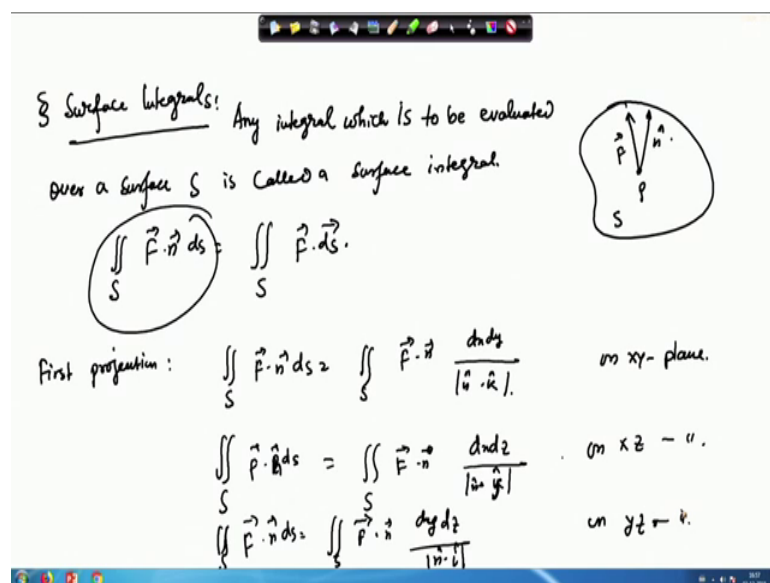 § Surface Integrals: Any integral which is to be evaluated
over a surface S is called a surface integral.
∬_S F⃗·n⃗ ds = ∬_S F⃗·d⃗s.
F⃗ n̂.
P
S
First projection: ∬_S F⃗·n⃗ ds = ∬_S F⃗·n⃗ dxdy/|n̂·k̂|. on xy-plane.
∬_S F⃗·n̂ ds = ∬_S F⃗·n⃗ dxdz/|n̂·ĵ| . on xz - ".
∬_S F⃗·n̂ ds = ∬_S F⃗·n⃗ dydz/|n̂·î| on yz - ".